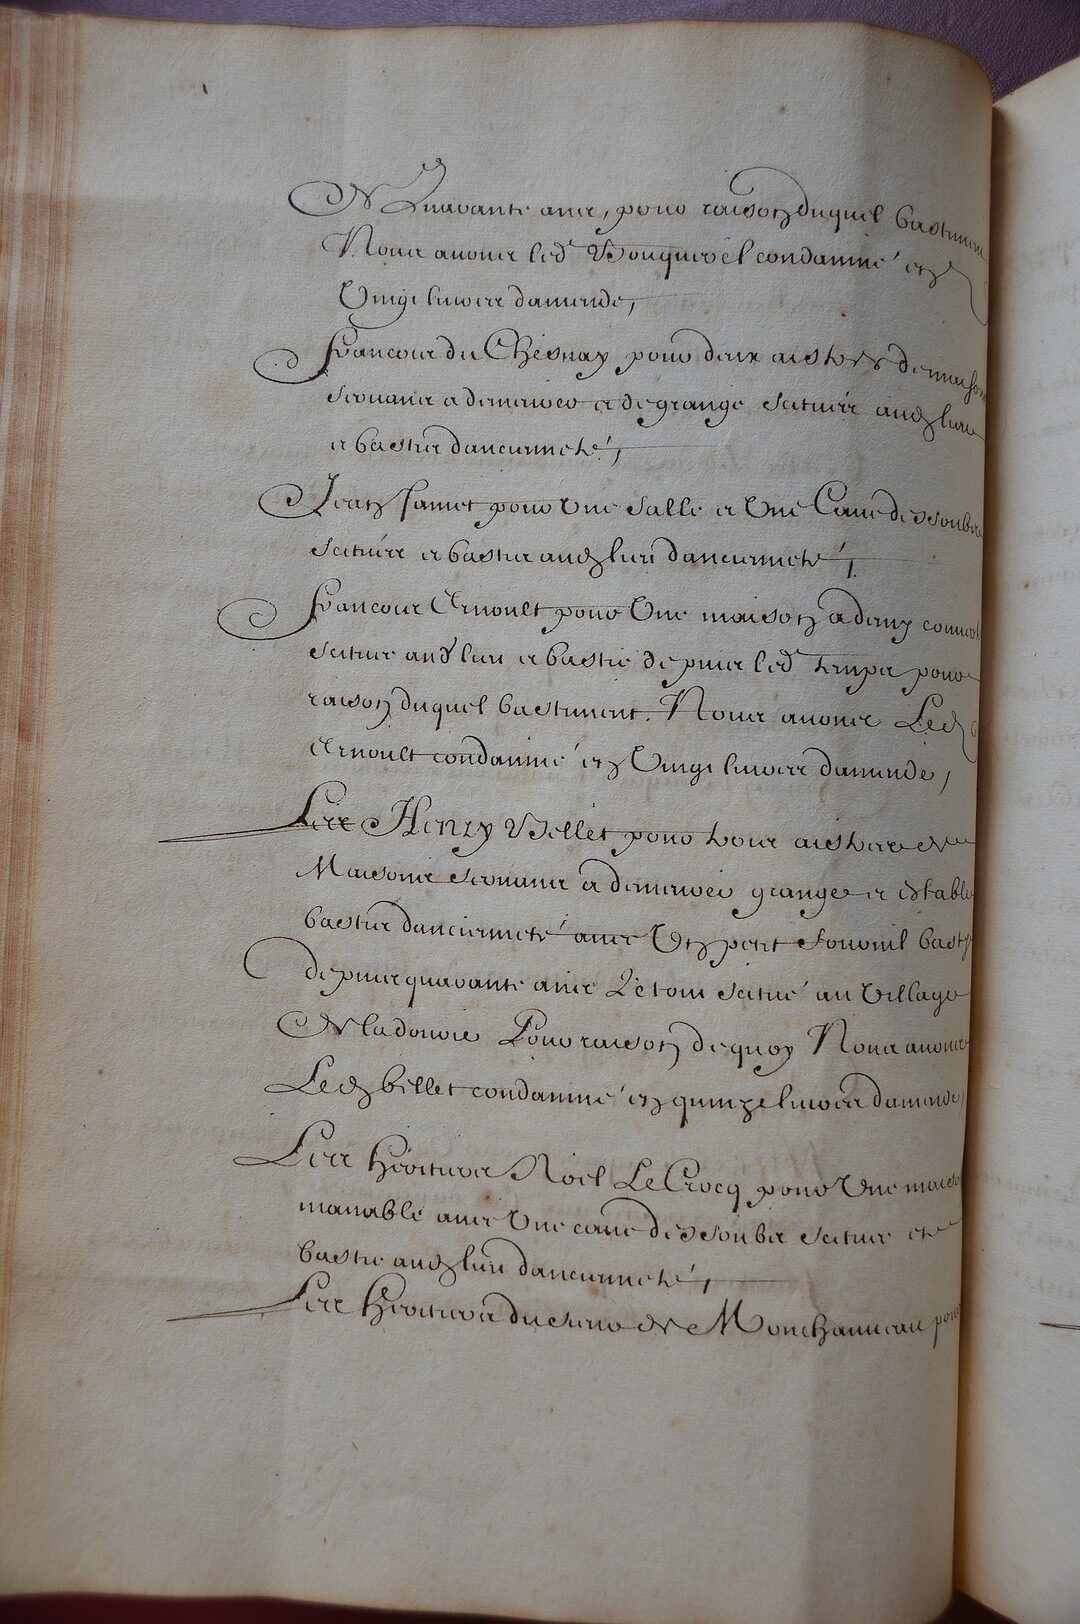 de Quarante ans, pour raison duquel bastiment
Nous avons led. Bouquerel condamné en
Vingt livres damende,
Francois du Chesnay pour deux aistres de maison
servants a demeurer et de grange scituée aud. lieu
et bastis danciennete,
Jean Samet pour Une Salle et Une Cave dessoubs
scituée et bastis aud. lieu danciennete,
Francois Ernoult pour Une maison a demy couverte
scituee aud. lieu et bastie depuis led. temps pour
raison duquel bastiment. Nous avons Led.
Ernoult condamné en Vingt livres damende,
Les Henry Bellet pour trois aistres de
Maisons servants a demeurer granges et estable
bastis danciennete avec Un petit fournil basty
depuis quarante ans Le tout scitué au Village
de Pour raison de quoy Nous avons
Led. bellet condamné en quinze livres damende,
Les héritiers Noël Le Crocq pour Une maison
manable avec Une cave dessoubs scituee et
bastie aud. lieu danciennete,
Les héritiers du sieur de pour